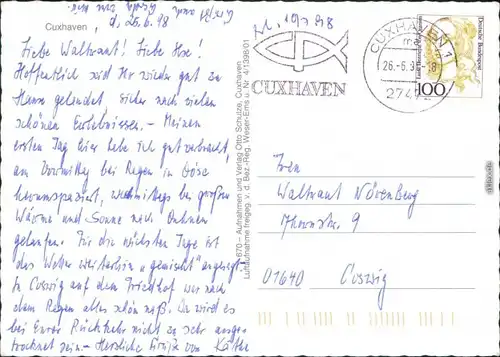 Cuxhaven, d. 25.6.98
Liebe Waltraut! Liebe Ilse!
Hoffentlich seid Ihr wieder gut zu
Hause gelandet, sicher nach vielen
schönen Erlebnissen. – Meinen
ersten Tag hier habe ich gut verbracht,
am Vormittag bei Regen in Döse
herumspaziert, nachmittags bei großer
Wärme und Sonne nach Duhnen
gelaufen. Für die nächsten Tage ist
das Wetter weiterhin "gemischt" angesagt.
In Coswig auf dem Friedhof war nach
dem Regen alles schön naß. Da wird es
bei Eurer Rückkehr nicht zu sehr ausge-
trocknet sein. – Herzliche Grüße von Käthe
670 – Aufnahmen und Verlag Otto Schulze, Cuxhaven
Luftaufnahme freigeg. v. d. Bez.-Reg. Weser-Ems u. Nr. 4/1398/01
CUXHAVEN
CUXHAVEN 1
26.-6.9 -18
274
Deutsche Bundespost
100
Waltraut Nürenberg
9
01640 Coswig